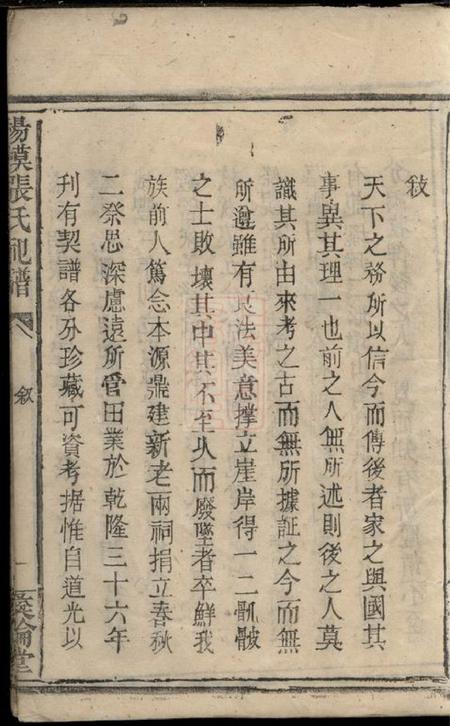 敘
天下之務所以信今而傳後者家之與國其
事異其理一也前之人無所述則後之人莫
識其所由來考之古而無所據証之今而無
所遵雖有良法美意撑立崖岸得一二骯髒
之士敗壞其中其不至久而廢墜者卒鮮我
族前人篤念本源鼎建新老兩祠捐立春秋
二祭思深慮遠所管田業於乾隆三十六年
刊有契譜各分珍藏可資考据惟自道光以
張氏祀譜
敘
一
倫堂